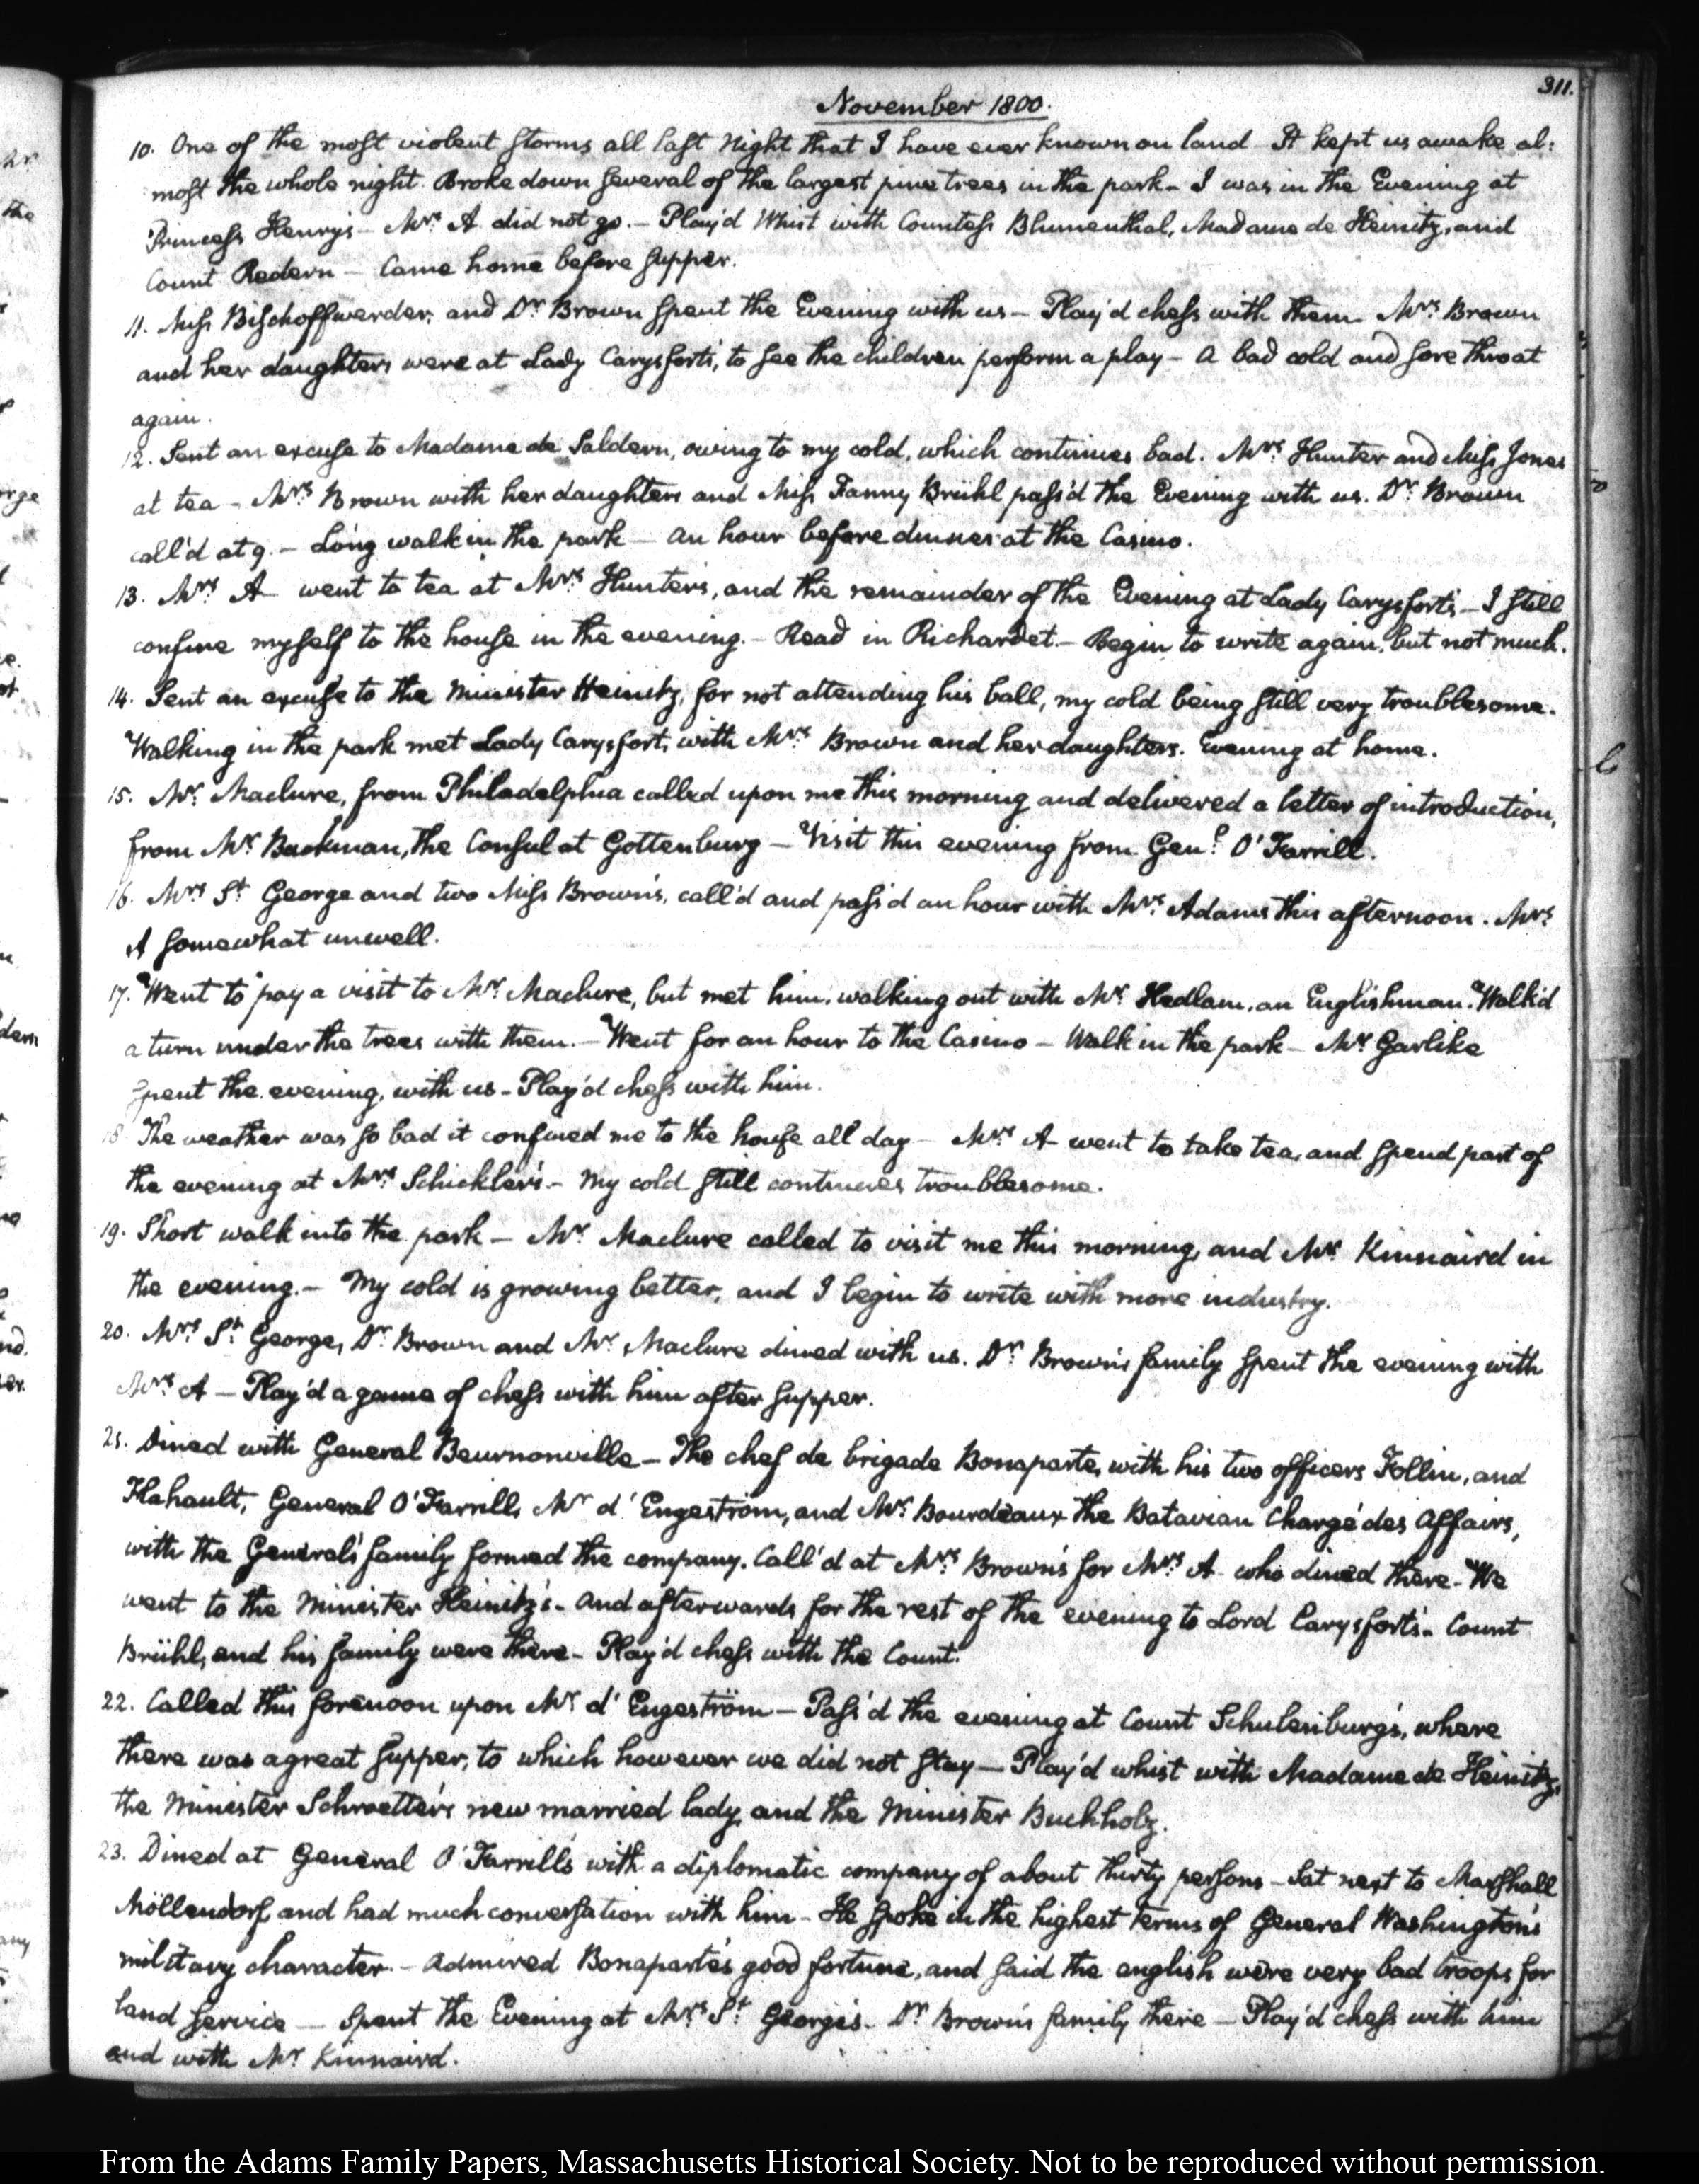 311.
November 1800.
10. One of the most violent storms all last night that I have ever known on land It kept us awake al:
most the whole night. Broke down several of the largest pine trees in the park – I was in the Evening at
Princess Henry's – Mrs. A did not go. – Play'd Whist with Countess Blumenthal, Madame de Heinitz, and
Count Redern – Came home before supper.
11. Miss Bischoffwerder, and Dr. Brown spent the Evening with us – Play'd chess with them – Mrs. Brown
and her daughters were at Lady Carysfort's, to see the children perform a play – A bad cold and sore throat
again.
12. Sent an excuse to Madame de Saldern, owing to my cold, which continues bad. Mrs. Hunter and Miss Jones
at tea – Mrs. Brown with her daughters and Miss Fanny Brühl pass'd the Evening with us. Dr. Brown
call'd at 9. – Long walk in the park – An hour before dinner at the Casino.
13. Mrs. A – went to tea at Mrs. Hunter's, and the remainder of the Evening at Lady Carysfort's – I still
confine myself to the house in the evening. – Read in Richardet. – Begin to write again, but not much.
14. Sent an excuse to the Minister Heinitz, for not attending his ball, my cold being still very troublesome.
Walking in the park met Lady Carysfort, with Mrs. Brown and her daughters. Evening at home.
15. Mr. Maclure, from Philadelphia called upon me this morning and delivered a letter of introduction,
from Mr. Backman, the Consul at Gottenburg – Visit this evening from Genl. O'Farrill.
16. Mrs. St. George and two Miss Brown's, call'd and pass'd an hour with Mrs. Adams this afternoon. Mrs.
A somewhat unwell.
17. Went to pay a visit to Mr. Maclure, but met him, walking out with Mr. Hedlam, an Englishman. Walk'd
a turn under the trees with them. – Went for an hour to the Casino – Walk in the park – Mr. Garlike
spent the evening, with us – Play'd chess with him.
18 The weather was so bad it confined me to the house all day – Mrs. A – went to take tea, and spend part of
the evening at Mrs. Schickler's – My cold still continues troublesome.
19. Short walk into the park – Mr. Maclure called to visit me this morning, and Mr. Kinnaird in
the evening. – My cold is growing better, and I begin to write with more industry.
20. Mrs. St. George, Dr. Brown and Mr. Maclure dined with us. Dr. Brown's family spent the evening with
Mrs. A – Play'd a game of chess with him after supper.
21. Dined with General Beurnonville – The chef de brigade Bonaparte, with his two officers Follin, and
Flahault, General O'Farrill, Mr. d'Engeström, and Mr. Bourdeaux the Batavian Chargé des Affairs,
with the General's family formed the company. Call'd at Mrs. Brown's for Mrs. A – who dined there – We
went to the Minister Heinitz's – And afterwards for the rest of the evening to Lord Carysfort's – Count
Brühl, and his family were there – Play'd chess with the Count.
22. Called this forenoon upon Mr. d'Engeström – Pass'd the evening at Count Schulenburg's, where
there was a great supper, to which however we did not stay – Play'd whist with Madame de Heinitz,
the Minister Schroetter's new married lady, and the Minister Buchholz.
23. Dined at General O'Farrill's with a diplomatic company of about thirty persons – Sat next to Marshall
Möllendorf, and had much conversation with him – He spoke in the highest terms of General Washington's
military character. – Admired Bonaparte's good fortune, and said the english were very bad troops for
land service – Spent the Evening at Mrs. St. George's. Dr. Brown's family there – Play'd chess with him
and with Mr. Kinnaird.
From the Adams Family Papers, Massachusetts Historical Society. Not to be reproduced without permission.